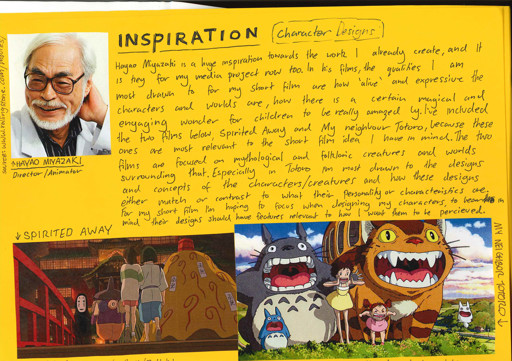 INSPIRATION
Character Designs
Hayao Miyazaki is a huge inspiration towards the work I already create, and it
is key for my media project now too. In his films, the qualities I am
most drawn to for my short film are how 'alive' and expressive the
characters and worlds are, how there is a certain magical and
engaging wonder for children to be really amazed by. I've included
the two films below, Spirited Away and My neighbour Totoro, because these
ones are most relevant to the short film idea I have in mind. The two
films are focused on mythological and folkloric creatures and worlds
surrounding that. Especially in Totoro I'm most drawn to the designs
and concepts of the characters/creatures and how these designs
either match or contrast to what their personality or characteristics are.
for my short film I'm hoping to focus when designing my characters, to bear in
mind their designs should have features relevant to how I want them to be percieved.
HAYAO MIYAZAKI
Director/Animator
↓ SPIRITED AWAY
MY NEIGHBOR TOTORO ↓